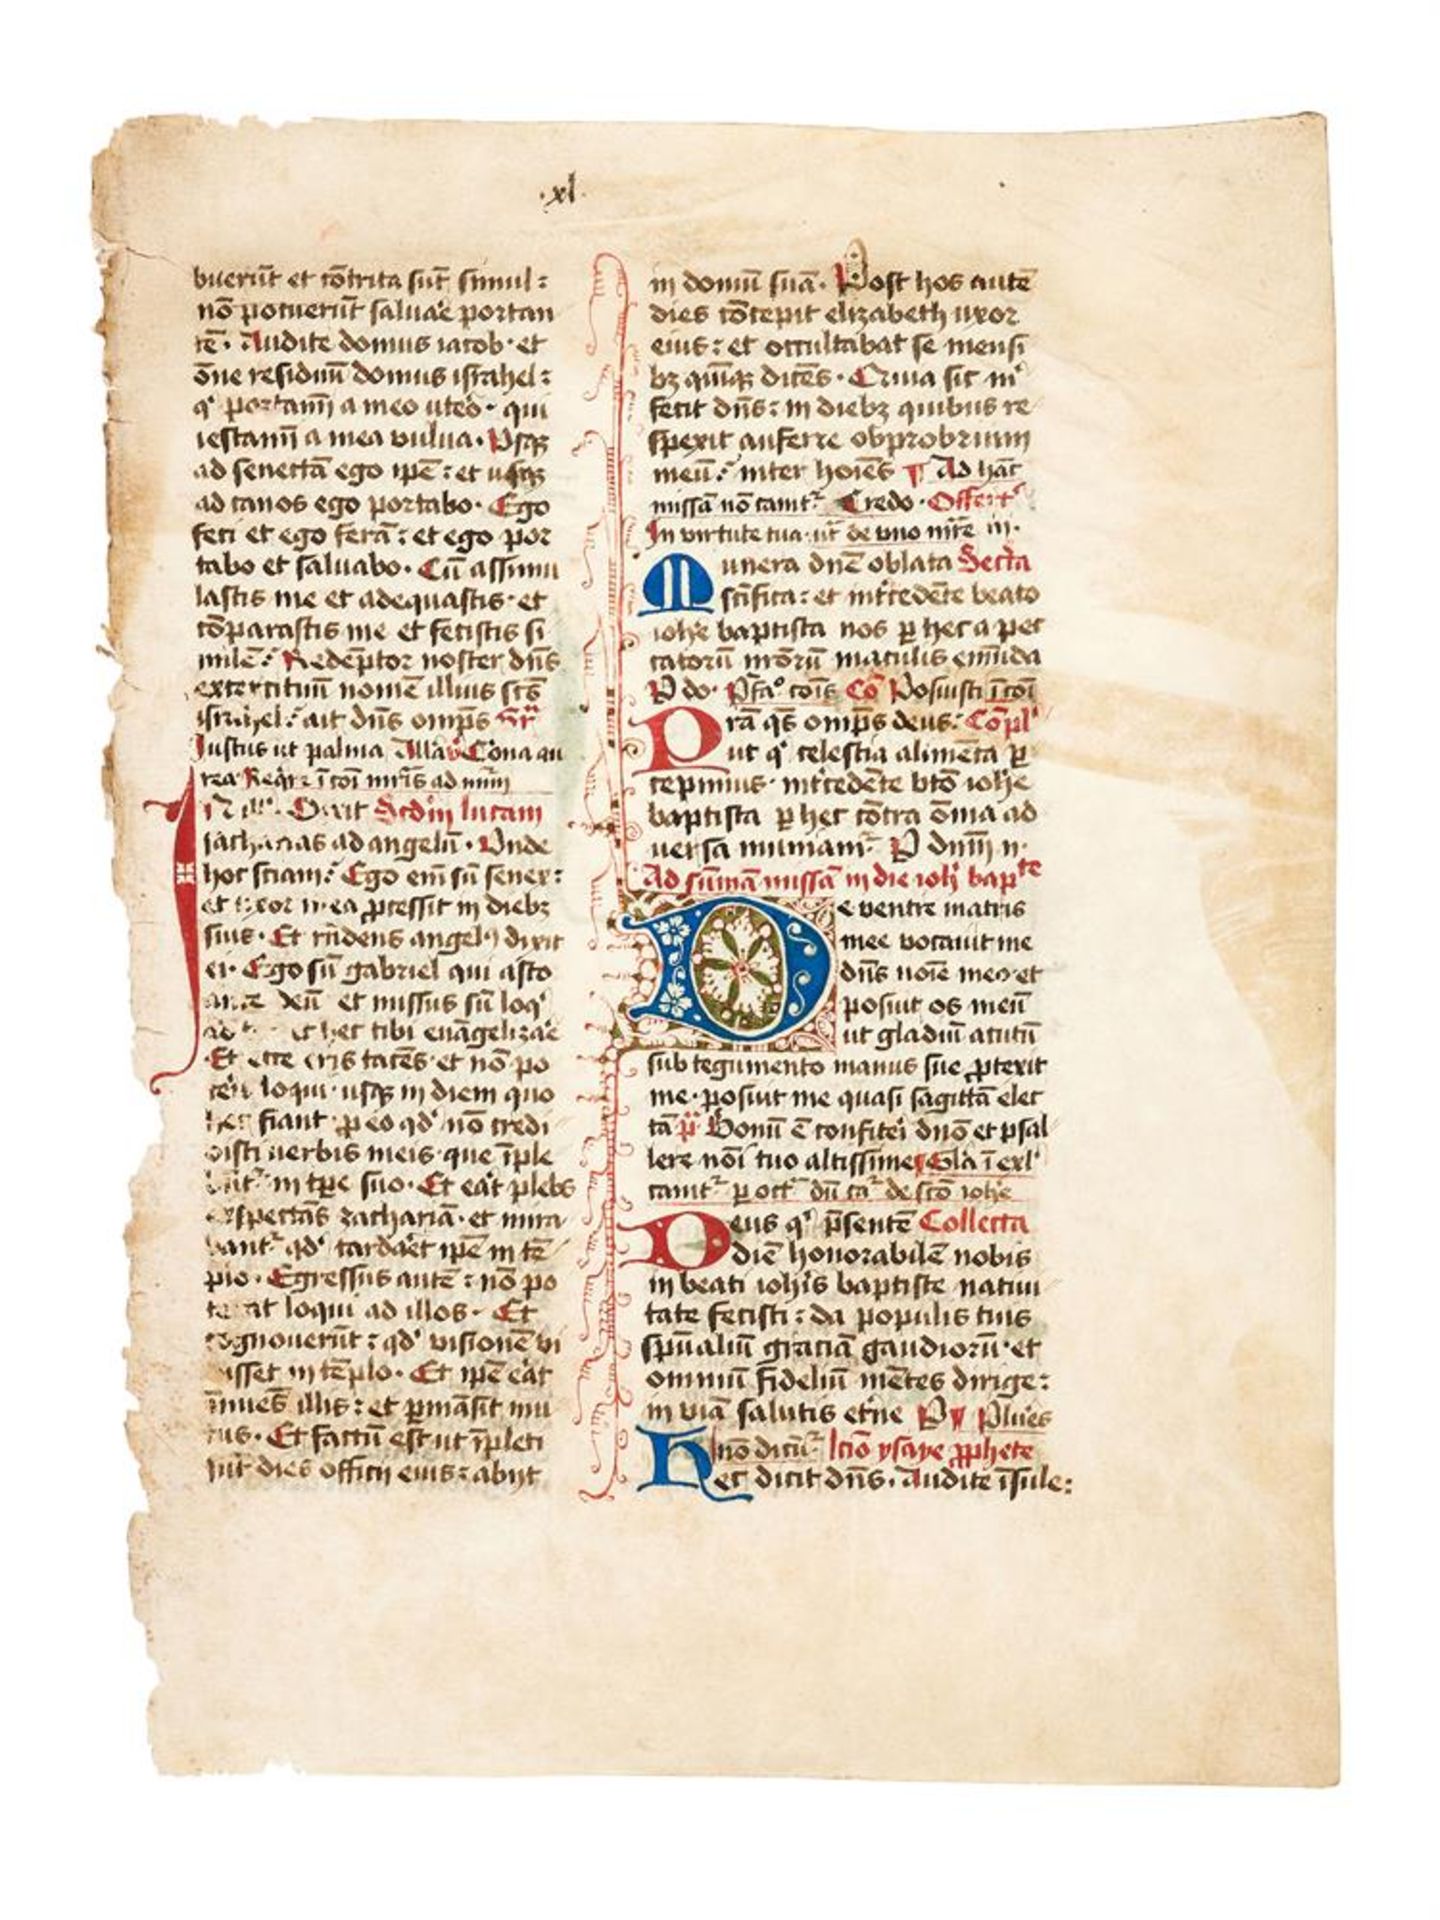 ·xl·
buerūt et cōtrita sūt simul:
nō potuerūt saluaͤe portan
tē· Audite domus iacob· et
ōne residuū domus israhel:
qͥ portamī a meo uteͦo· qui
iestamī a mea vulua· Vsqꝫ
ad senectā ego ipē: et usqꝫ
ad canos ego portabo· Ego
feci et ego ferā: et ego por
tabo et saluabo· Cū assimi
lastis me et adequastis· et
cōparastis me et fecistis si
milē: Redēptor noster dn̄s
exercituū nomē illius sc̄s
israhel: ait dn̄s omp̄s
Iustus ut palma Alla Cōna au
rea Reqͬe ī cōi mr̄is ad
Dixit Scd̄m lucam
zacharias ad angelū· Vnde
hoc sciam: Ego em̄ sū senex:
et uxor mea ꝓcessit in diebꝫ
suis· Et rn̄dens angelꝰ dixit
ei· Ego sū gabriel qui asto
ante deū et missus sū loqͥ
ad hec tibi euāgelizaͤe
Et ecce eris tacēs· et nō po
teͬis loqui· usqꝫ in diem quo
hec fiant· ꝓ eo qdͦ nō credi
disti uerbis meis· que īple
in tp̄e suo· Et eaͤt plebs
exspectās zachariā· et mira
bantͬ· qdͦ tardaͤet ipē in tē
plo· Egressus autē: nō po
terat loqui ad illos· Et
cognouerūt: qdͦ visionē vi
disset in tēplo· Et ipē eaͤt
īnuēs illis: et ꝑmāsit mu
tus· Et factū est ut īpleti
sūt dies officij eius: abijt
in domū suā· Post hos autē
dies cōcepit elizabeth uxor
eius: et occultabat se mensi
bꝫ quīqꝫ dicēs· Quia sic mͥ
fecit dn̄s: in diebꝫ quibus re
spexit auferre obprobrium
meū: inter hoīes Ad hāc
missā nō canitͬ Credo· Offertͬ
In virtute tua· ut de uno mr̄e iii·
Munera dn̄e oblata Secͬta
sc̄ifica: et int̾cedēte beato
ioh̄e baptista nos ꝑ hec a pec
catorū nr̄orū maculis emūda
P do· Pfaͦ cōis Cō Posuisti ī cōi
Pra qs̄ omp̄s deus: Cōplͥ
ut qͥ celestia alimēta ꝑ
cepimus· int̾cedēte bt̄o ioh̄e
baptista ꝑ hec cōtra ōnia ad
uersa muniamͬ P dnm̄ n·
Ad sūmā missā in die ioh̄ bapͭͤ
De ventre matris
mee vocauit me
dn̄s noīe meo· et
posuit os meū
ut gladiū acutū
sub tegumento manus sue ꝓtexit
me· posuit me quasi sagittā elec
tā p̄ Bonū ē confiteͥi dn̄o et psal
lere nōi tuo altissime Glā ī exlͥ
canitͬ ꝑ octͣ dū caͬ de sc̄o ioh̄e
Deus qͥ p̄sentē Collecta
diē honorabilē nobis
in beati ioh̄is baptiste natiui
tate fecisti: da populis tuis
spūaliū graciā gaudiorū· et
omniū fideliū mētes dirige:
in viā salutis et̾ne P Plures
nō dicūtͬ lcīo ysaye ꝓphete
Hec dicit dn̄s· Audite īsule: